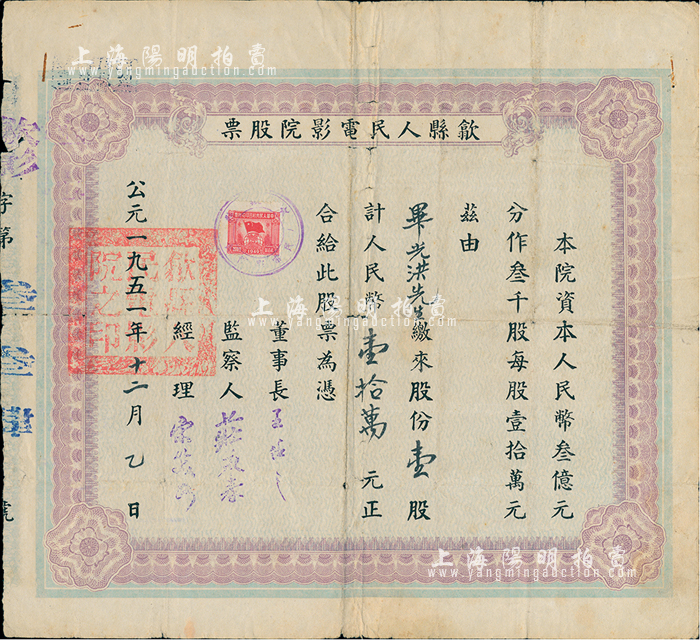 上海陽明拍賣
www.yangmingauction.com
歙縣人民電影院股票
本院資本人民幣叁億元
分作叁千股每股壹拾萬元
茲由
畢光洪先生繳來股份壹股
計人民幣壹拾萬元正
合給此股票為憑
董事長
監察人
經理
公元一九五一年十二月乙日
歙縣人民電影院之印
字第
叁叁壹
號
上海陽明拍賣
www.yangmingauction.com
上海陽明拍賣
www.yangmingauction.com